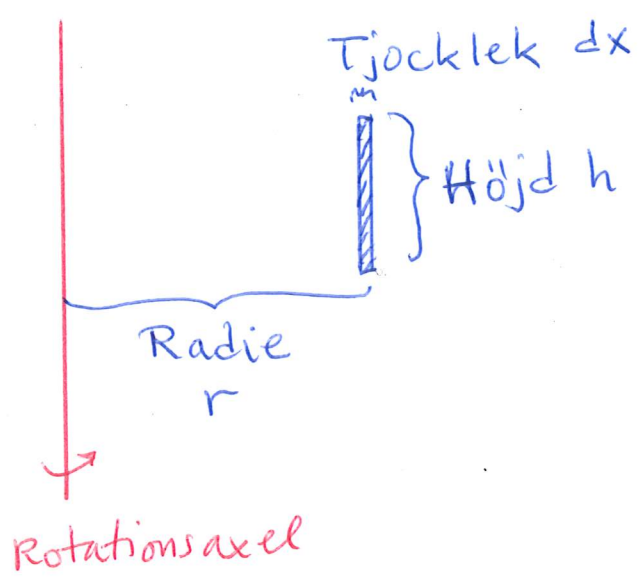 Tjocklek dx
Höjd h
Radie
r
Rotationsaxel